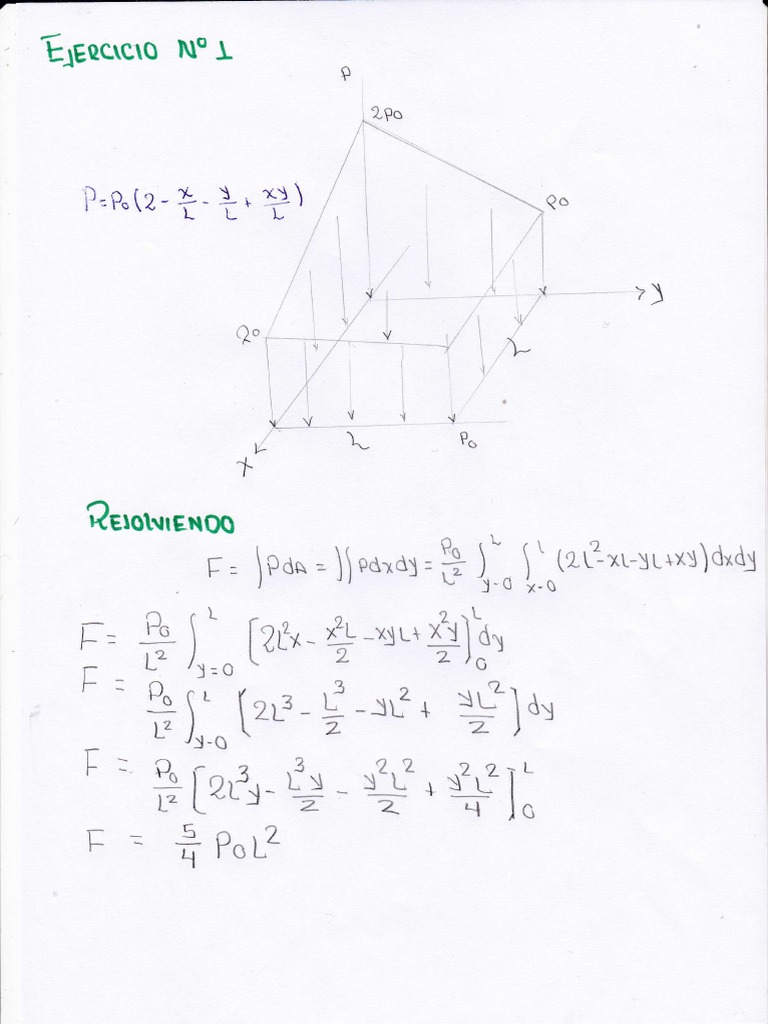 EJERCICIO Nº 1
P
2P0
P=P0(2-x/L-y/L+xy/L)
P0
y
P0
L
L
P0
X
RESOLVIENDO
F = ∫PdA = ∫∫Pdxdy = P0/L² ∫y=0^L ∫x=0^L (2L²-xL-yL+xy)dxdy
F = P0/L² ∫y=0^L [2L²x - x²L/2 - xyL + x²y/2]0^L dy
F = P0/L² ∫y=0^L [2L³ - L³/2 - yL² + yL²/2] dy
F = P0/L² [2L³y - L³y/2 - y²L²/2 + y²L²/4]0^L
F = 5/4 P0L²